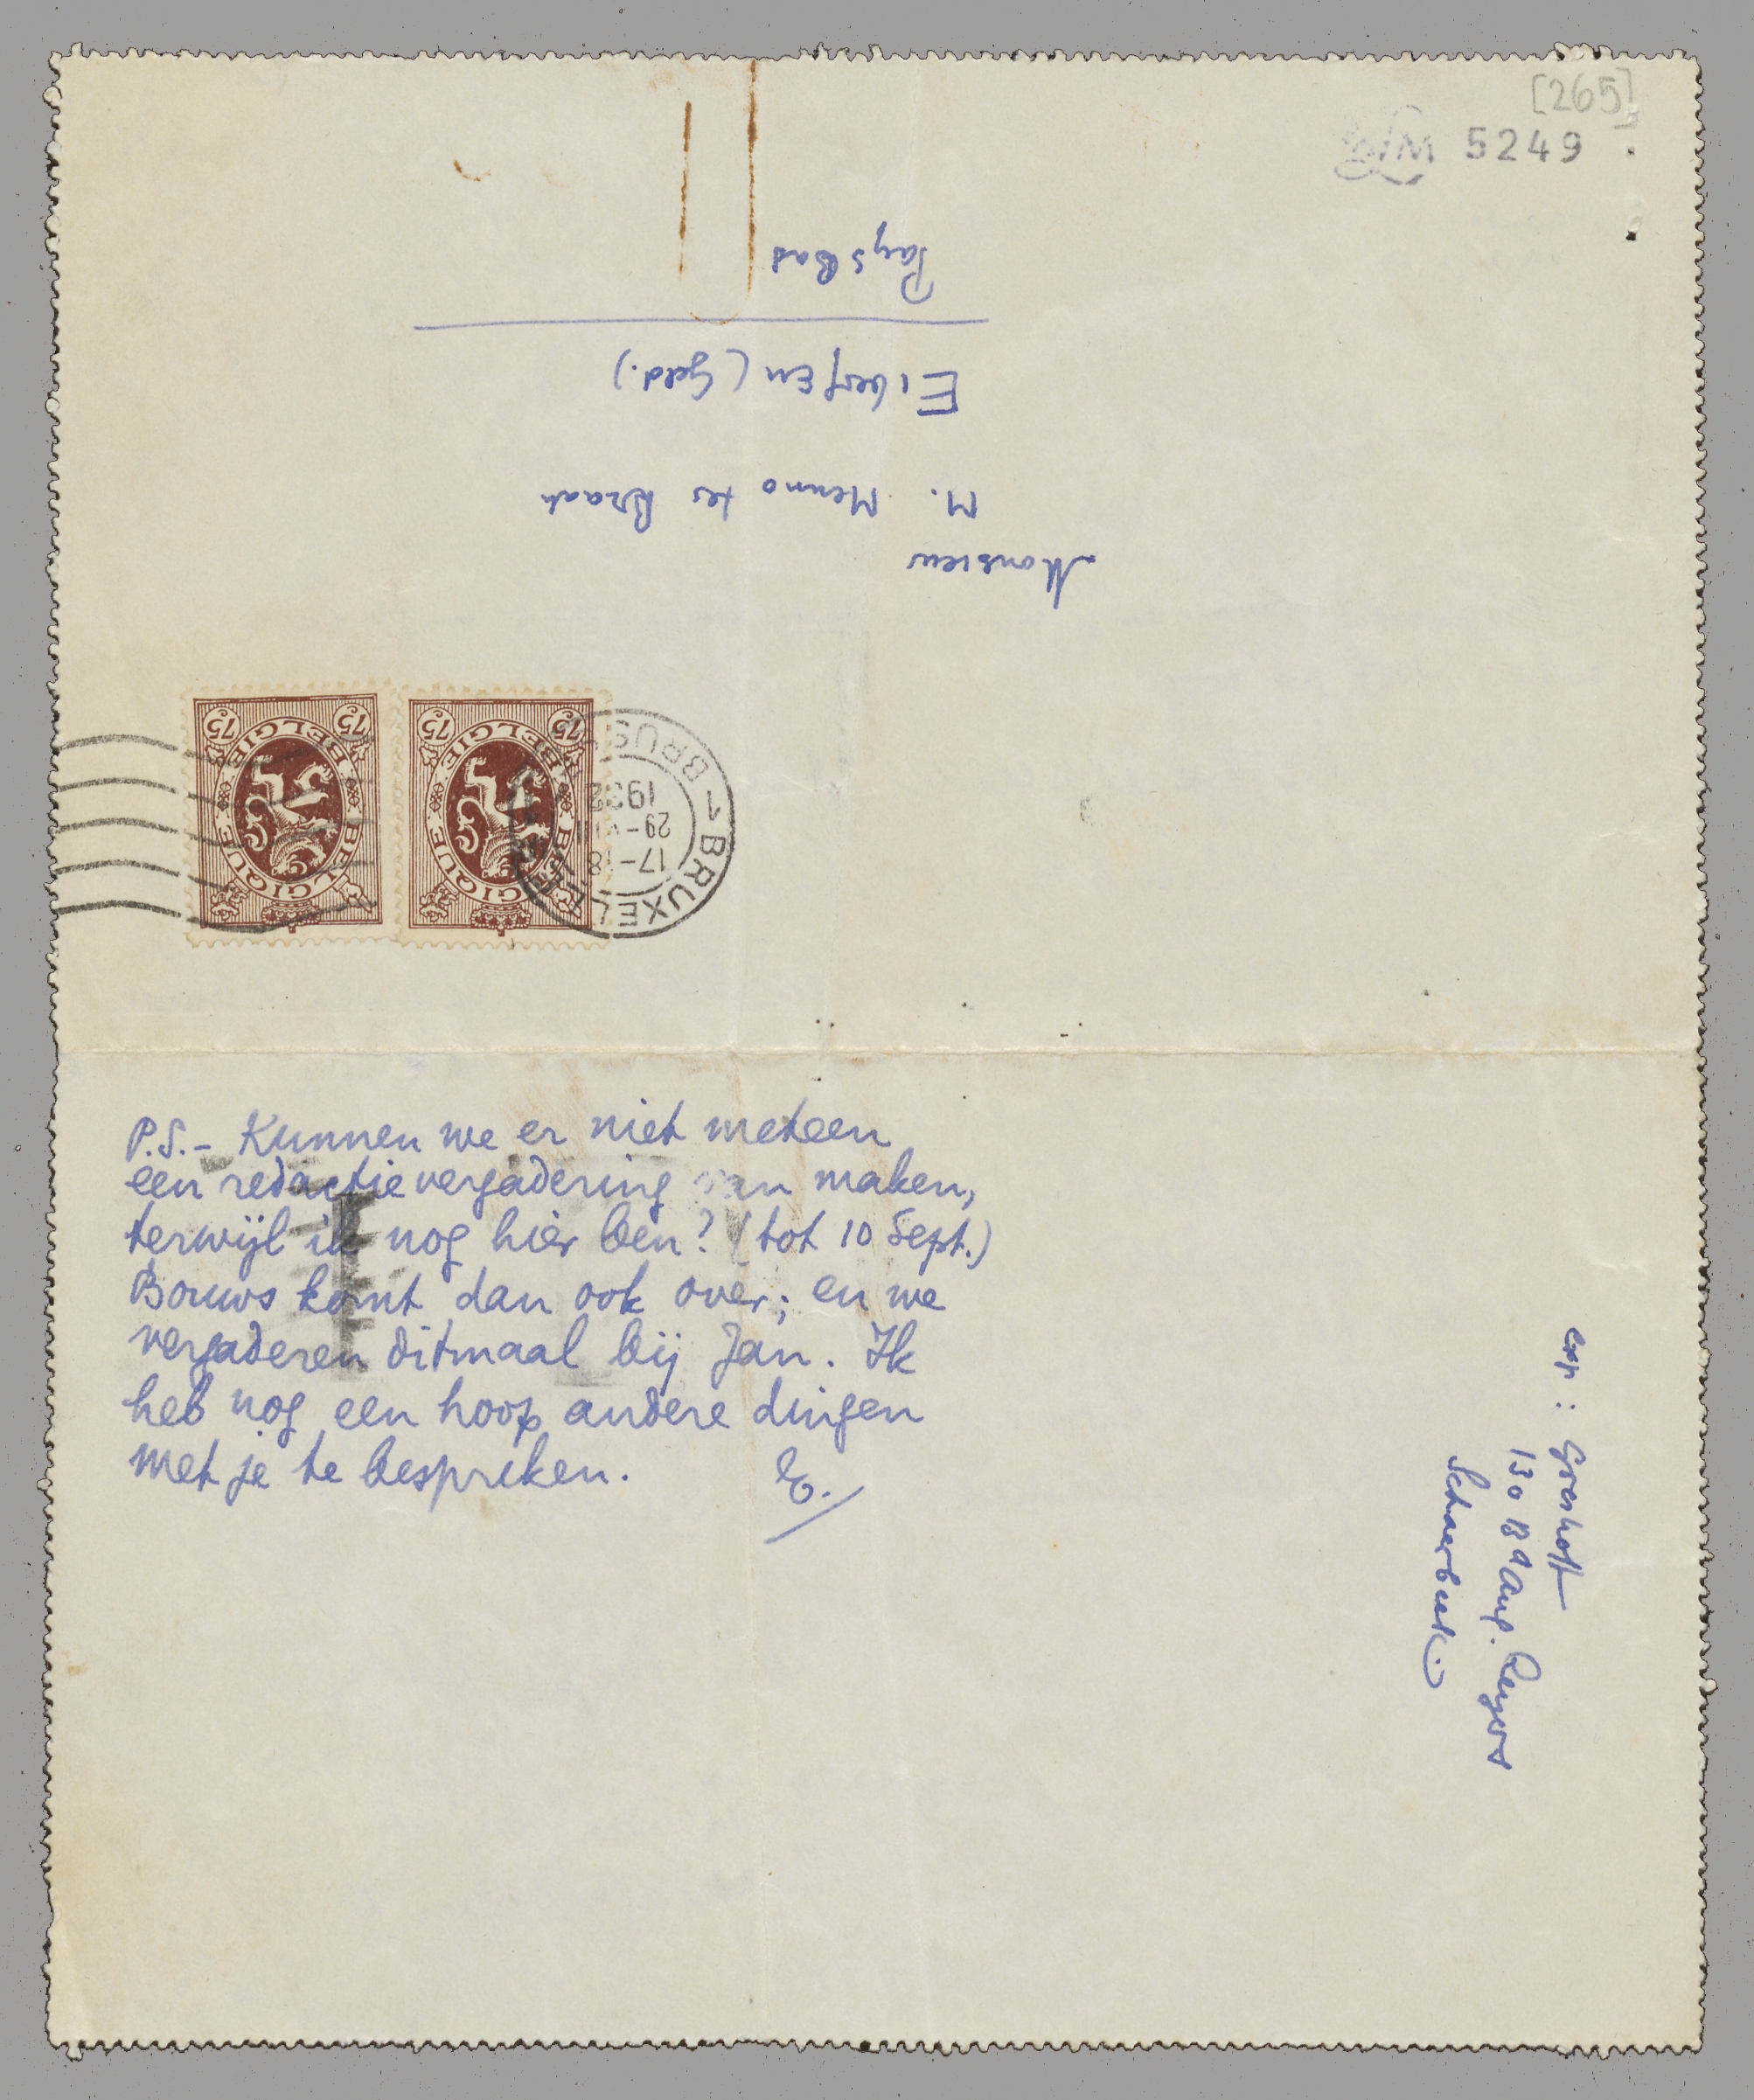 [265]
5249
Monsieur
M. Menno ter Braak
Eibergen (Geld.)
Pays Bas
75 75
BELGIE BELGIQUE
75 75
BELGIE BELGIQUE
BRUXEL
17-18
1932
BRUS
P.S. – Kunnen we er niet meteen
een redactievergadering van maken,
terwijl ik nog hier ben? (tot 10 Sept.)
Bouws komt dan ook over; en we
vergaderen ditmaal bij Jan. Ik
heb nog een hoop andere dingen
met je te bespreken.
E.
exp: Greshoff
130 Bd Aug. Reyers
Schaerbeek.